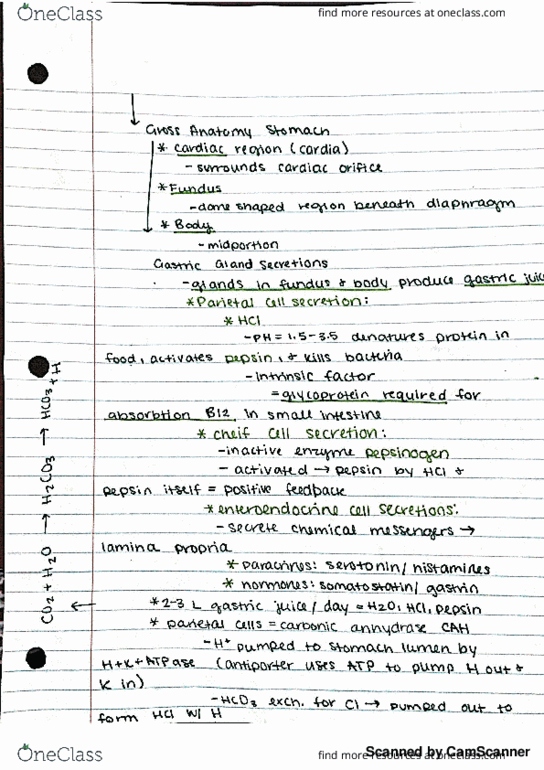 OneClass
find more resources at oneclass.com
Gross Anatomy Stomach
* cardiac region (cardia)
- surrounds cardiac orifice
* Fundus
- dome shaped region beneath diaphragm
* Body
- midportion
Gastric Gland Secretions
- glands in fundus & body produce gastric juic
* Parietal cell secretion:
* HCl
- PH = 1.5-3.5 denatures protein in
food, activates pepsin, & kills bacteria
- intrinsic factor
= glycoprotein required for
absorption B12 in small intestine
* cheif cell secretion:
- inactive enzyme pepsinogen
- activated → pepsin by HCl &
pepsin itself = positive feedback
* enteroendocrine cell secretions:
- secrete chemical messengers →
lamina propria
* paracrines: serotonin/ histamines
* hormones: somatostatin/ gastrin
* 2-3 L gastric juice/ day = H2O, HCl, pepsin
* parietal cells = carbonic anhydrase CAH
- H+ pumped to stomach lumen by
H+K+ATPase (antiporter uses ATP to pump H out &
K in)
- HCO3 exch. for Cl → pumped out to
form HCl w/ H
CO2 + H2O → H2CO3 → HCO3 + H
OneClass
find more resources at oneclass.com
Scanned by CamScanner